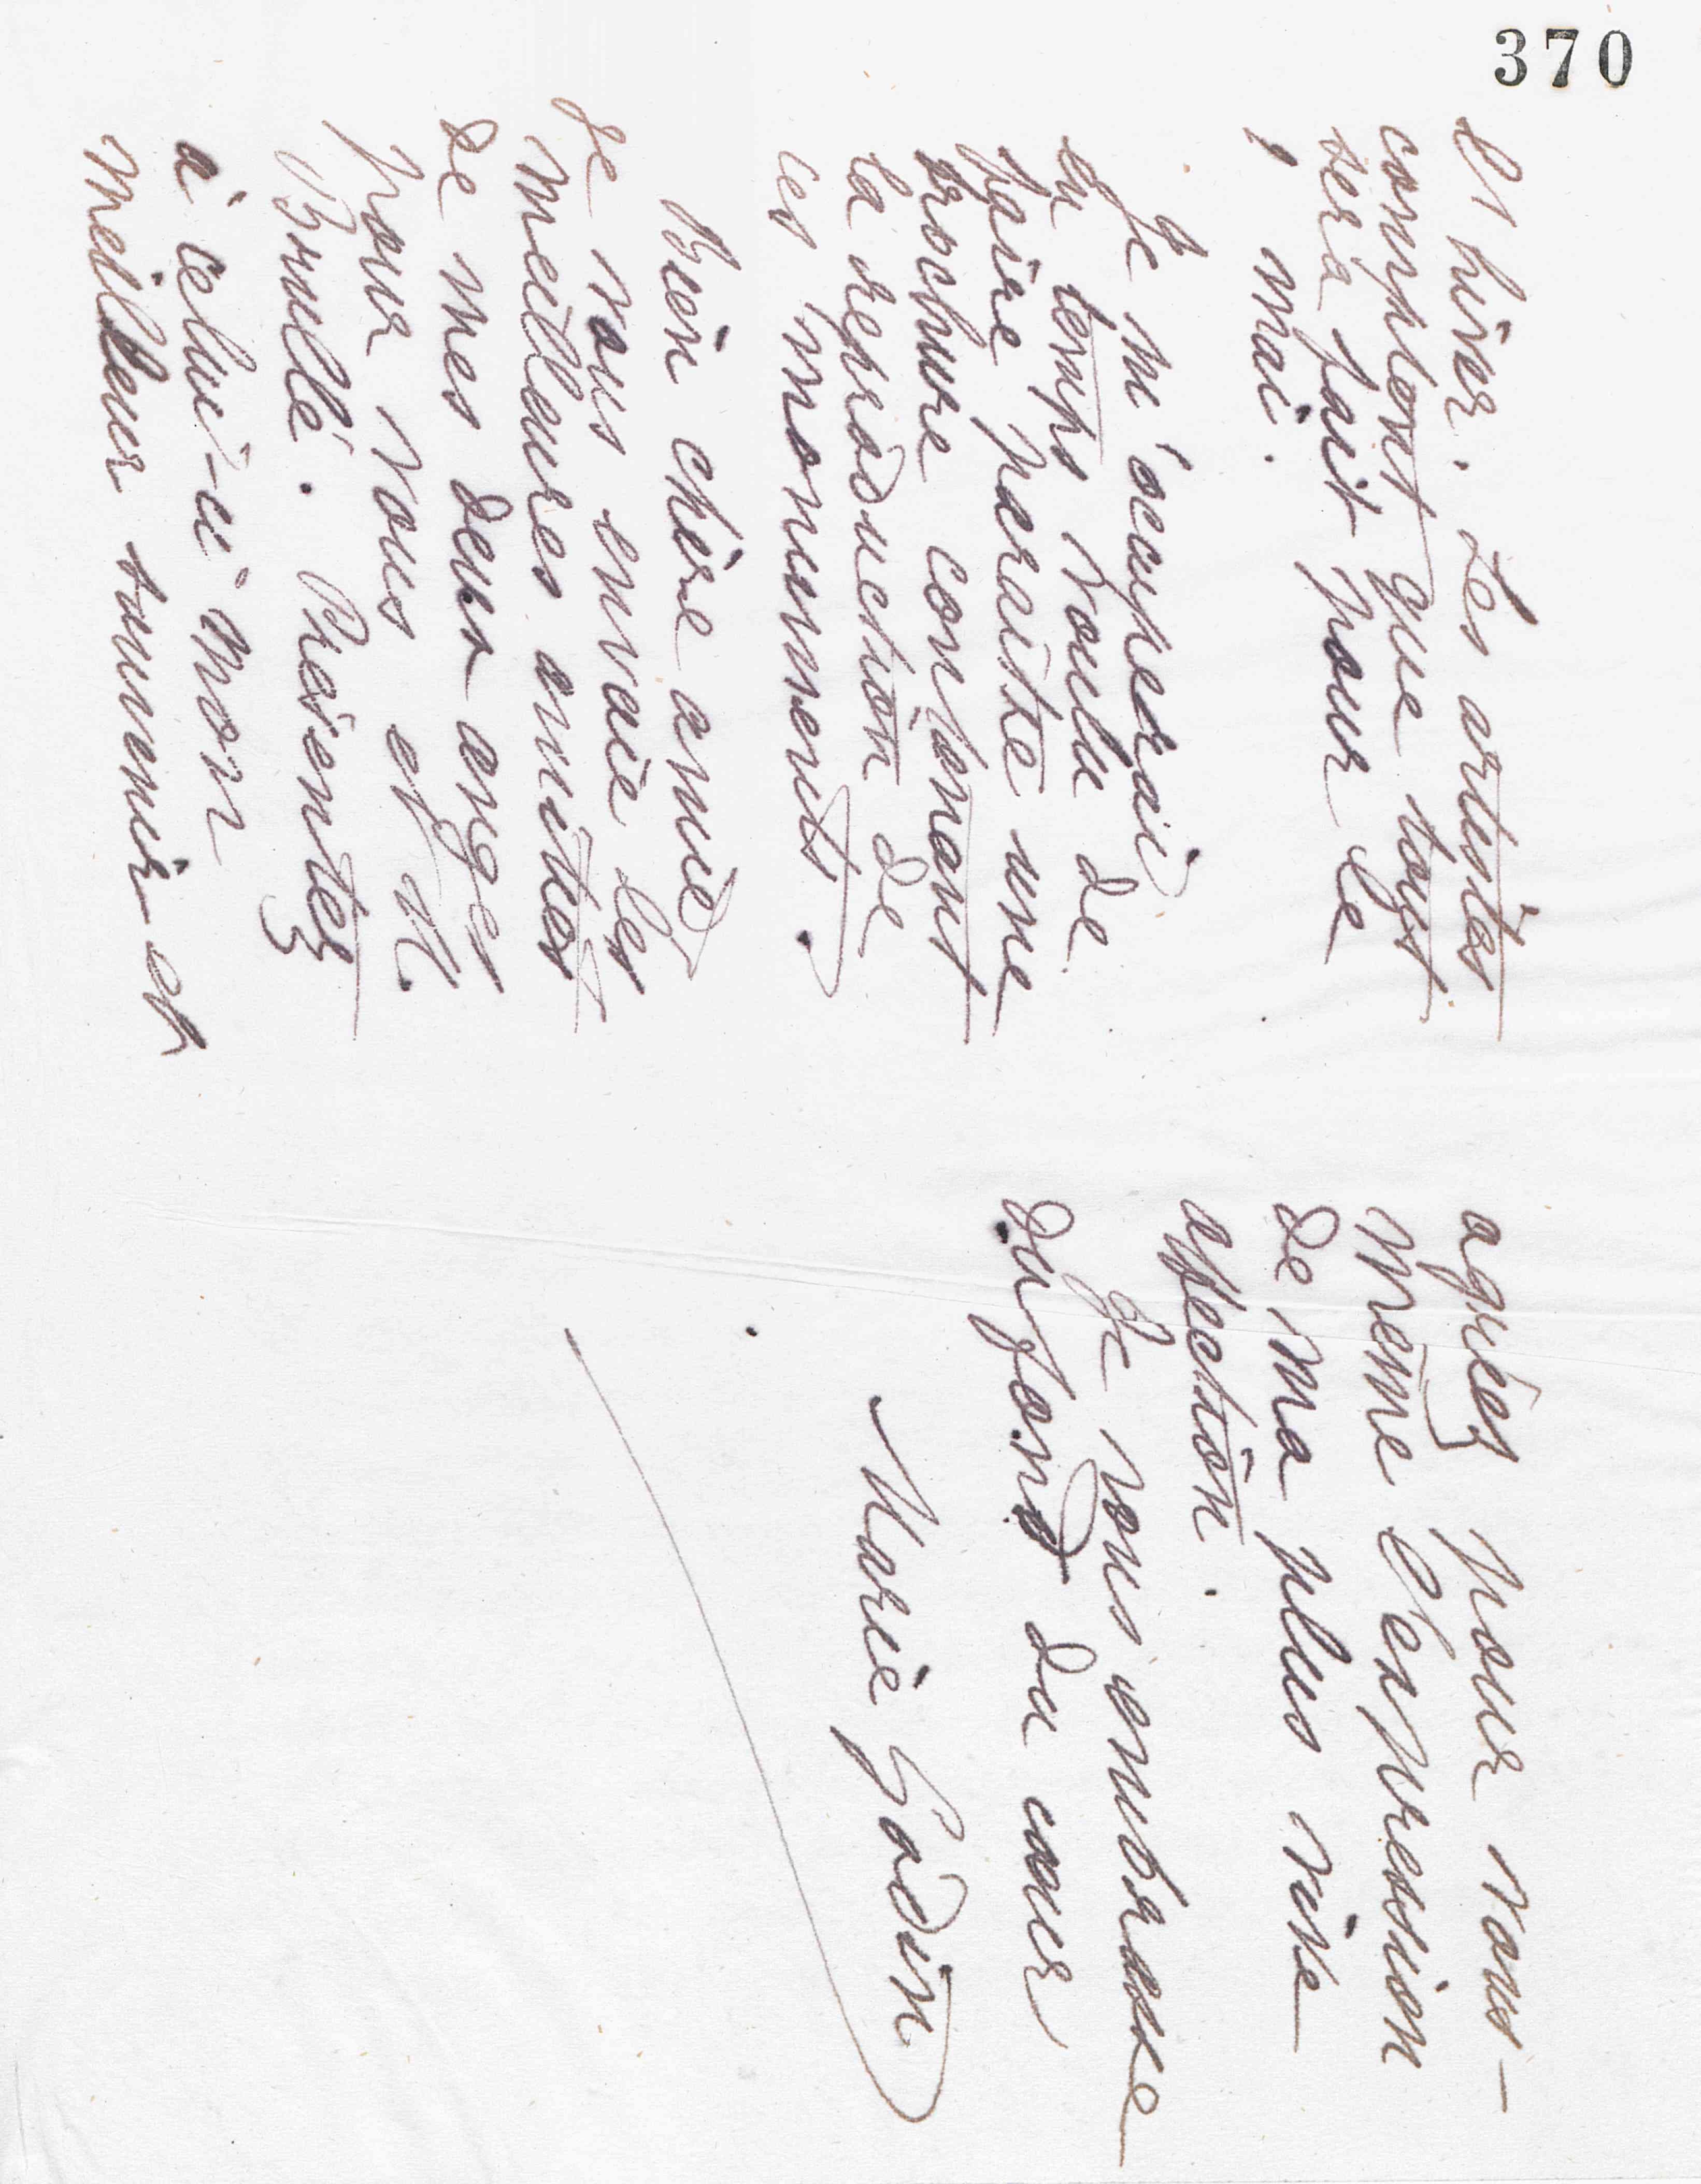 370
l'hiver. Les artistes
comptent que tout
sera fait pour le
1er mai.
Je m'occuperai
en temps voulu de
faire paraître une
brochure contenant
la reproduction de
ces monuments.
Bien chère amie
je vous envoie les
meilleures amitiés
de mes deux anges
pour vous et M.
Brullé. Présentez
à celui-ci mon
meilleur souvenir et
agréez pour vous-
même l'expression
de ma plus vive
affection.
Je vous embrasse
du fond du cœur
Marie Godin